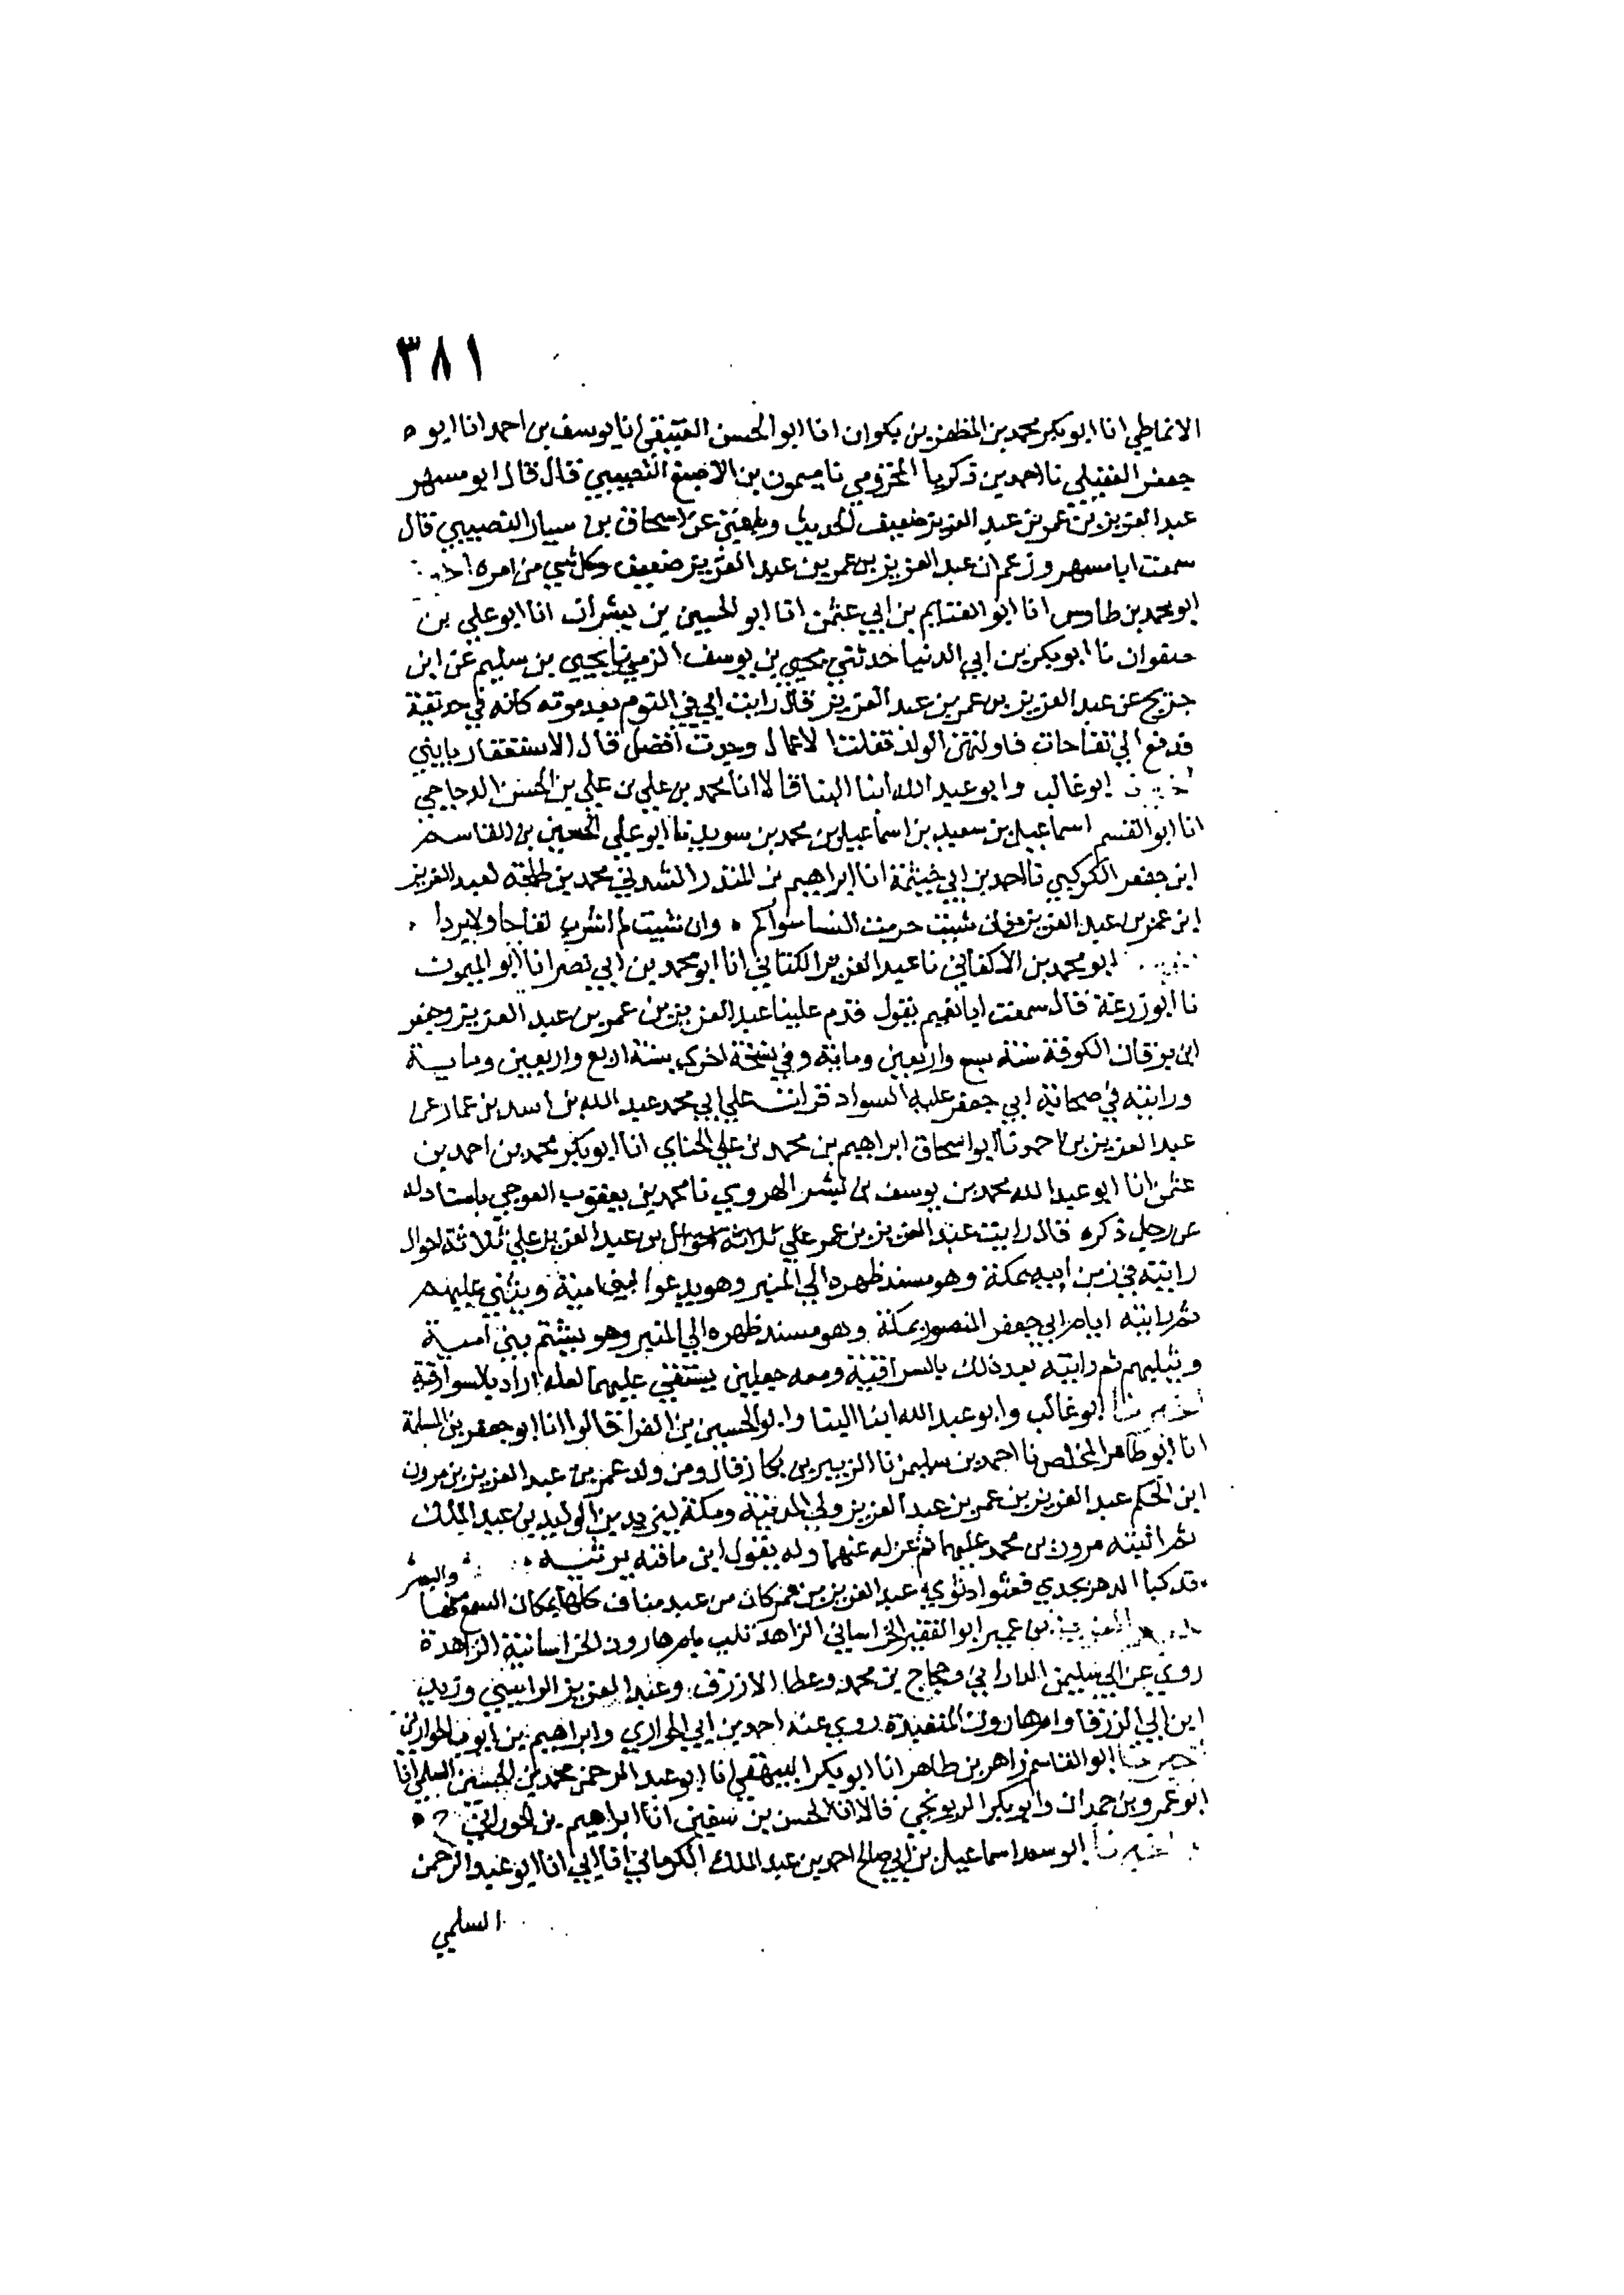 ٣٨١
الانماطي انا ابو بكر محمد بن المظفر بن بكران انا ابو الحسن العتيقي انا يوسف بن احمد انا ابو ه
جعفر العقيلي نا احمد بن زكريا المخزومي نا ميمون بن الاصبغ النصيبي قال قال ابو مسهر
عبد العزيز بن عمر بن عبد العزيز ضعيف الحديث وبلغني عن اسحاق بن سيار النصيبي قال
سمعت ابا مسهر وزعم ان عبد العزيز بن عمر بن عبد العزيز ضعيف وكل شي من امره
ابو محمد بن طاوس انا ابو الغنايم بن ابي عثمن انا ابو الحسين بن بشران انا ابو علي بن
صفوان نا ابو بكر بن ابي الدنيا حدثني محيى بن يوسف الزمي نا يحيى بن سليم عن ابن
جريج عن عبد العزيز بن عمر بن عبد العزيز قال رايت ابي في النوم بعد موته كانه في حديقة
فدفع الي تفاحات فاولتهن الولد فقلت الاعمال وجدت افضل قال الاستغفار يا بني
ابو غالب وابو عبد الله ابنا البنا قالا انا محمد بن علي بن علي بن الحسن الدجاجي
انا ابو القسم اسماعيل بن سعيد بن اسماعيل بن محمد بن سويد نا ابو علي الحسين بن القاسم
ابن جعفر الكوكبي نا احمد بن ابي خيثمة انا ابراهيم بن المنذر انشدني محمد بن طلحة لعبد العزيز
ابن عمر بن عبد العزيز فان شيت حرمت النسا سواكم ه وان شيت لم اشرب نقاخا ولا بردا
ابو محمد بن الاكفاني نا عبد العزيز الكتاني انا ابو محمد بن ابي نصر انا ابو الميمون
نا ابو زرعة قال سمعت ابا نعيم يقول قدم علينا عبد العزيز بن عمر بن عبد العزيز وجعفر
ابن برقان الكوفة سنة سبع واربعين وماية وفي نسخة اخرى سنة اربع واربعين وماية
ورايته في صحابة ابي جعفر عليه السواد قرات علي ابي محمد عبد الله بن اسد بن عمار عن
عبد العزيز بن احمد نا ابو اسحاق ابراهيم بن محمد بن علي الحناي انا ابو بكر محمد بن احمد بن
عثمن انا ابو عبد الله محمد بن يوسف بن بشر الهروي نا محمد بن يعقوب العوجي باسناد له
عن رجل ذكره قال رايت عبد العزيز بن عمر علي ثلاثة احوال بن عبد العزيز علي ثلاثة احوال
رايته في زمن ابيه بمكة وهو مسند ظهره الي المنبر وهو يدعوا لبني امية ويثني عليهم
ثم رايته ايام ابي جعفر المنصور بمكة وهو مسند ظهره الي المنبر وهو يشتم بني امية
ويثلبهم ثم رايته بعد ذلك بالسراقية ومعه جملين يستقي عليهما لعله اراد بالسوارقية
اخبرنا ابو غالب وابو عبد الله ابنا البنا وابو الحسين بن الفرا قالوا انا ابو جعفر بن المسلمة
انا ابو طاهر المخلص نا احمد بن سليمن نا الزبير بن بكار قال ومن ولد عمر بن عبد العزيز بن مرون
ابن الحكم عبد العزيز بن عمر بن عبد العزيز ولي المدينة ومكة ليزيد بن الوليد بن عبد الملك
ثم اثبته مرون بن محمد عليهما ثم عزله عنهما وله يقول ابن مافنه يرثيه
قد كبا الدهر بجدي فعثر عبد العزيز بن عمر كان من عبد مناف كلها بمكان السمع منها والبصر
عبد العزيز بن عمير ابو الفقير الخراساني الزاهد
روي عن ابي سليمن الداراني وحجاج بن محمد وعطا الازرق وعبد العزيز الراسبي وزيد
ابن ابي الزرقا وام هارون المتعبدة روي عنه احمد بن ابي الحواري وابراهيم بن ايوب الحوراني
اخبرنا ابو القاسم زاهر بن طاهر انا ابو بكر البيهقي انا ابو عبد الرحمن محمد بن الحسين السلمي انا
ابو عمرو بن حمدان وابو بكر الريونجي قالا انا الحسن بن سفين انا ابراهيم بن الحوراني ح ه
اخبرنا ابو سعد اسماعيل بن ابي صالح احمد بن عبد الملك الكرماني انا ابي انا ابو عبد الرحمن
السلمي